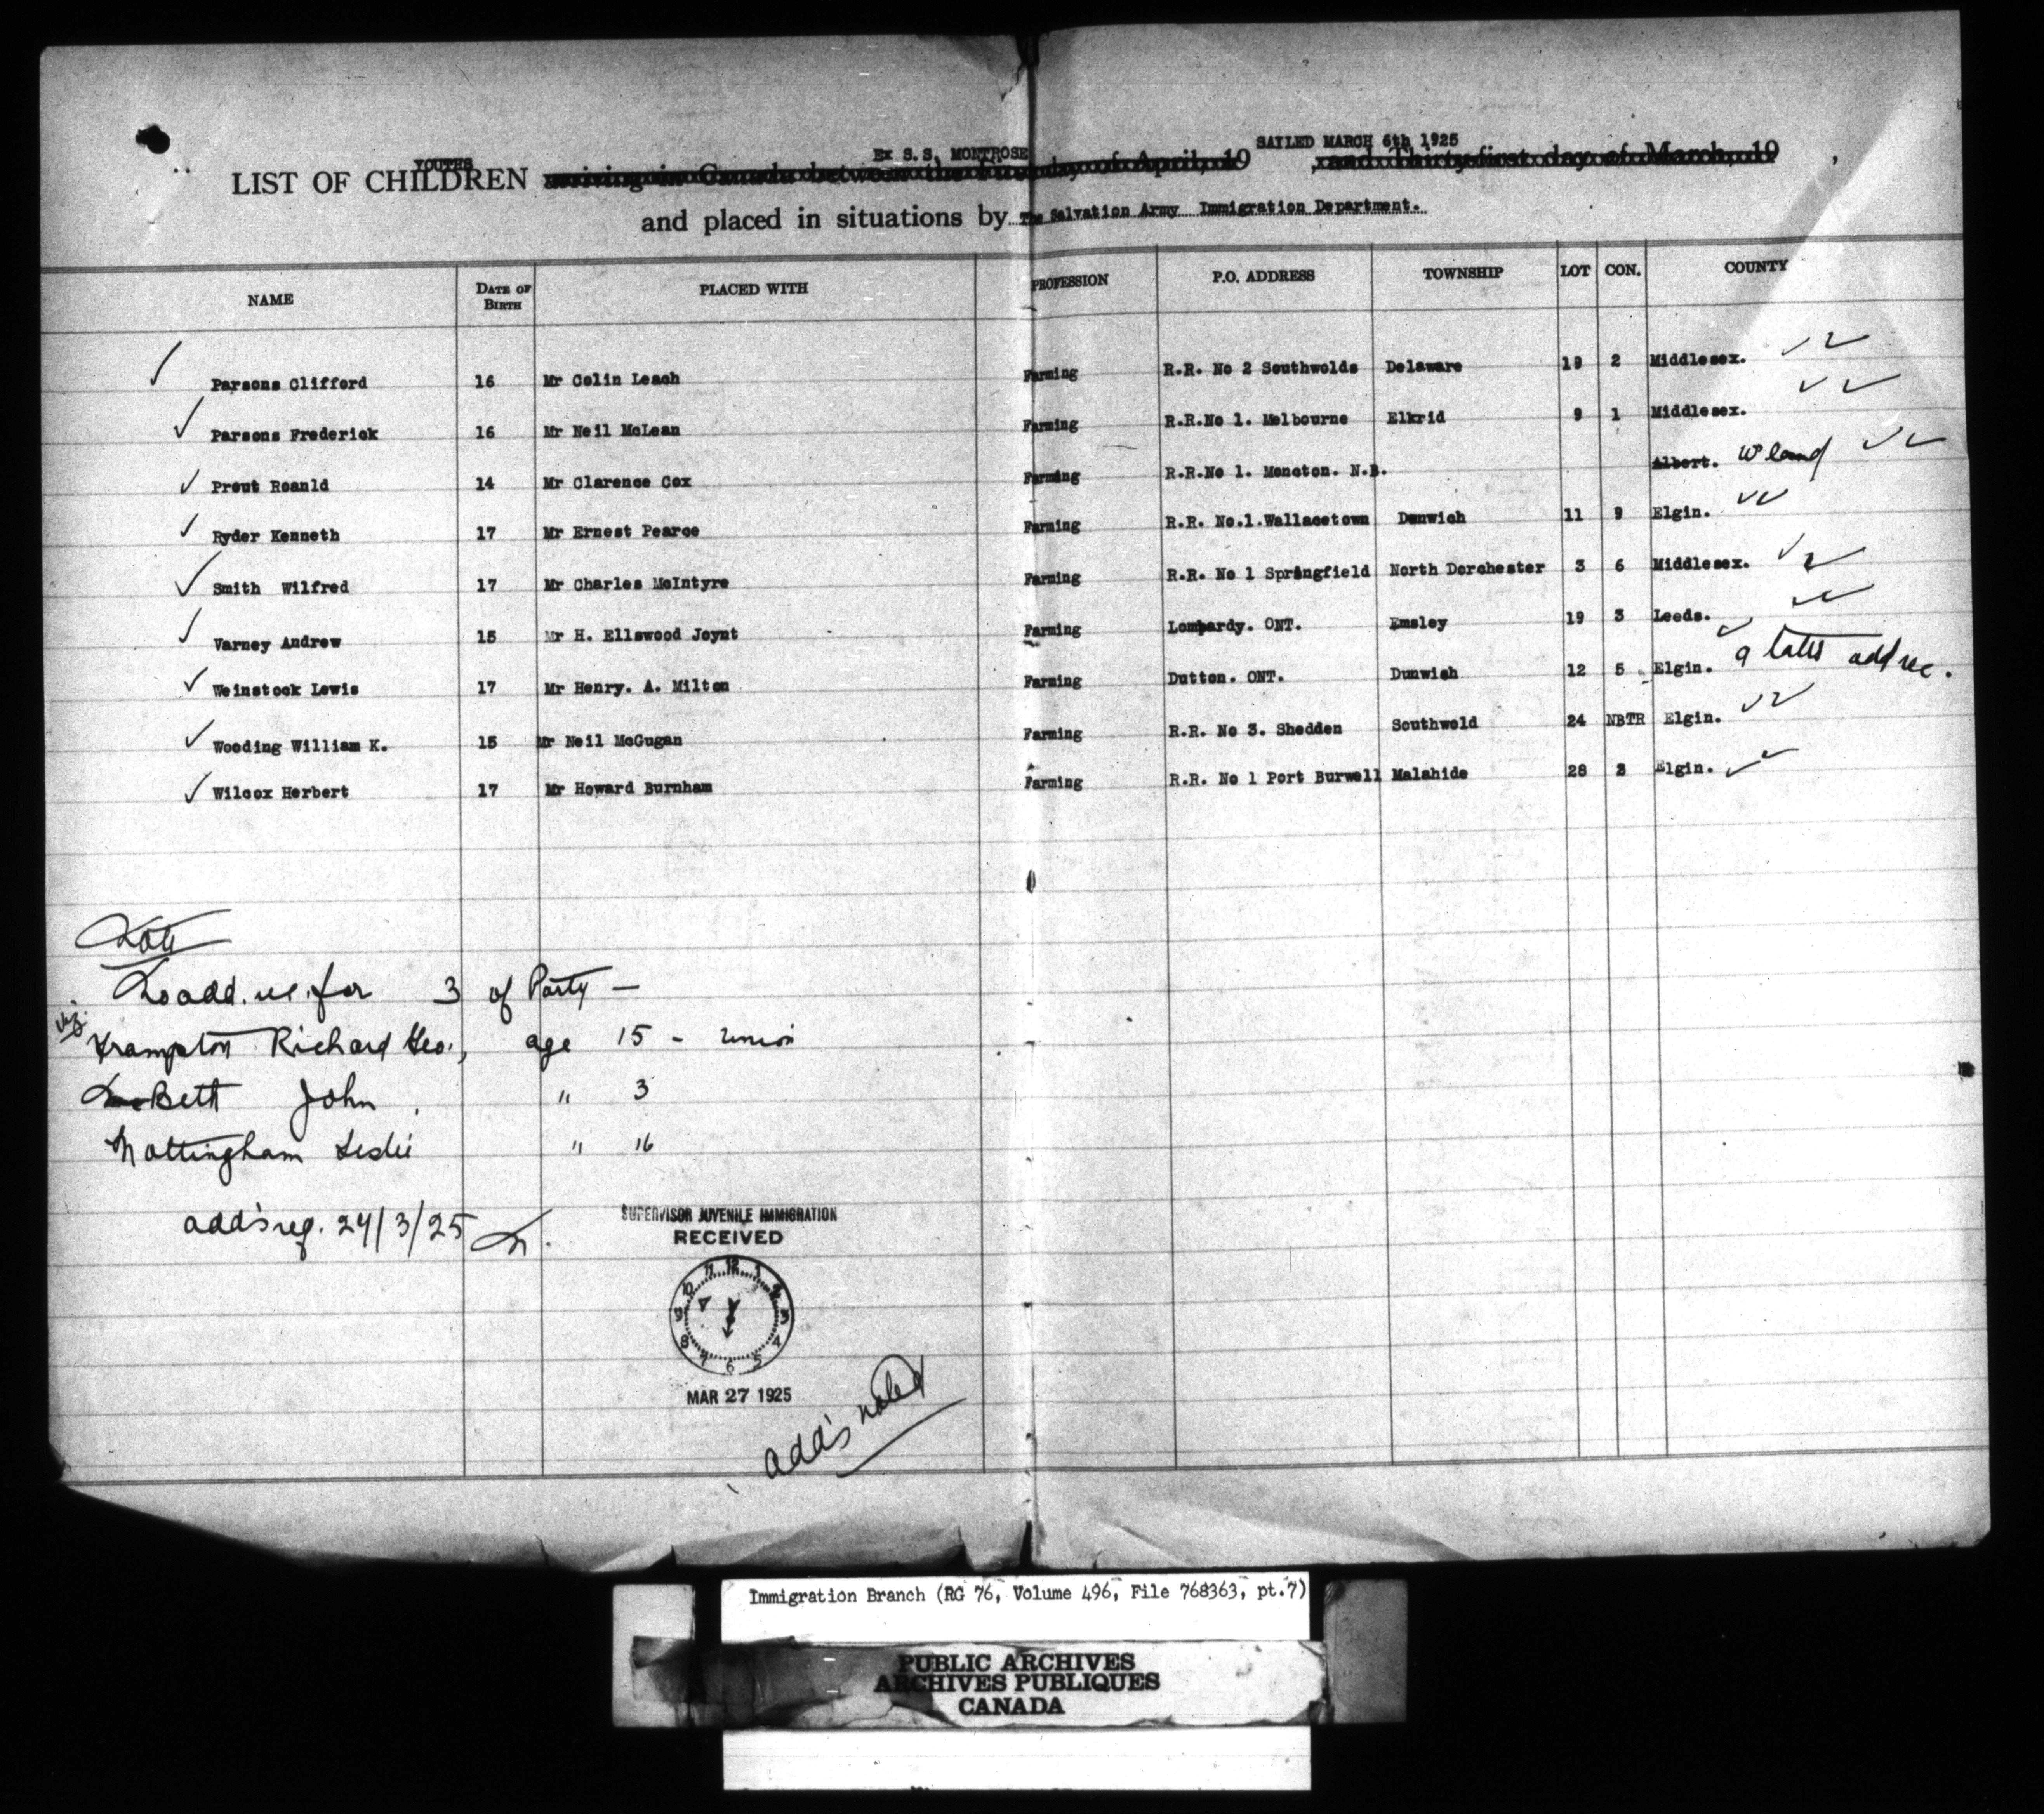 YOUTHS Ex S.S. MONTROSE SAILED MARCH 6th 1925
LIST OF CHILDREN arriving in Canada between the first day of April, 19 , and Thirty-first day of March, 19 ,
and placed in situations by The Salvation Army Immigration Department.
NAME DATE OF BIRTH PLACED WITH PROFESSION P.O. ADDRESS TOWNSHIP LOT CON. COUNTY
Parsons Clifford 16 Mr Colin Leach Farming R.R. No 2 Southwolds Delaware 19 2 Middlesex.
Parsons Frederick 16 Mr Neil McLean Farming R.R.No 1. Melbourne Elkrid 9 1 Middlesex.
Prout Roanld 14 Mr Clarence Cox Farming R.R.No 1. Moncton. N.B. Albert.
Ryder Kenneth 17 Mr Ernest Pearce Farming R.R. No.1.Wallacetown Dunwich 11 9 Elgin.
Smith Wilfred 17 Mr Charles McIntyre Farming R.R. No 1 Springfield North Dorchester 3 6 Middlesex.
Varney Andrew 15 Mr H. Ellswood Joynt Farming Lombardy. ONT. Emsley 19 3 Leeds.
Weinstock Lewis 17 Mr Henry. A. Milton Farming Dutton. ONT. Dunwish 12 5 Elgin. add rec.
Wooding William K. 15 Mr Neil McGugan Farming R.R. No 3. Shedden Southwold 24 NBTR Elgin.
Wilcox Herbert 17 Mr Howard Burnham Farming R.R. No 1 Port Burwell Malahide 28 3 Elgin.
Note
No add. rec. for 3 of Party —
viz.
Frampton Richard Geo., age 15 -
Bett John, " 3
Nottingham Leslie " 16
add's req. 24/3/25
SUPERVISOR JUVENILE IMMIGRATION
RECEIVED
12 1 2 3 4 5 6 7 8 9 10 11
MAR 27 1925
add's noted
Immigration Branch (RG 76, Volume 496, File 768363, pt.7)
PUBLIC ARCHIVES
ARCHIVES PUBLIQUES
CANADA